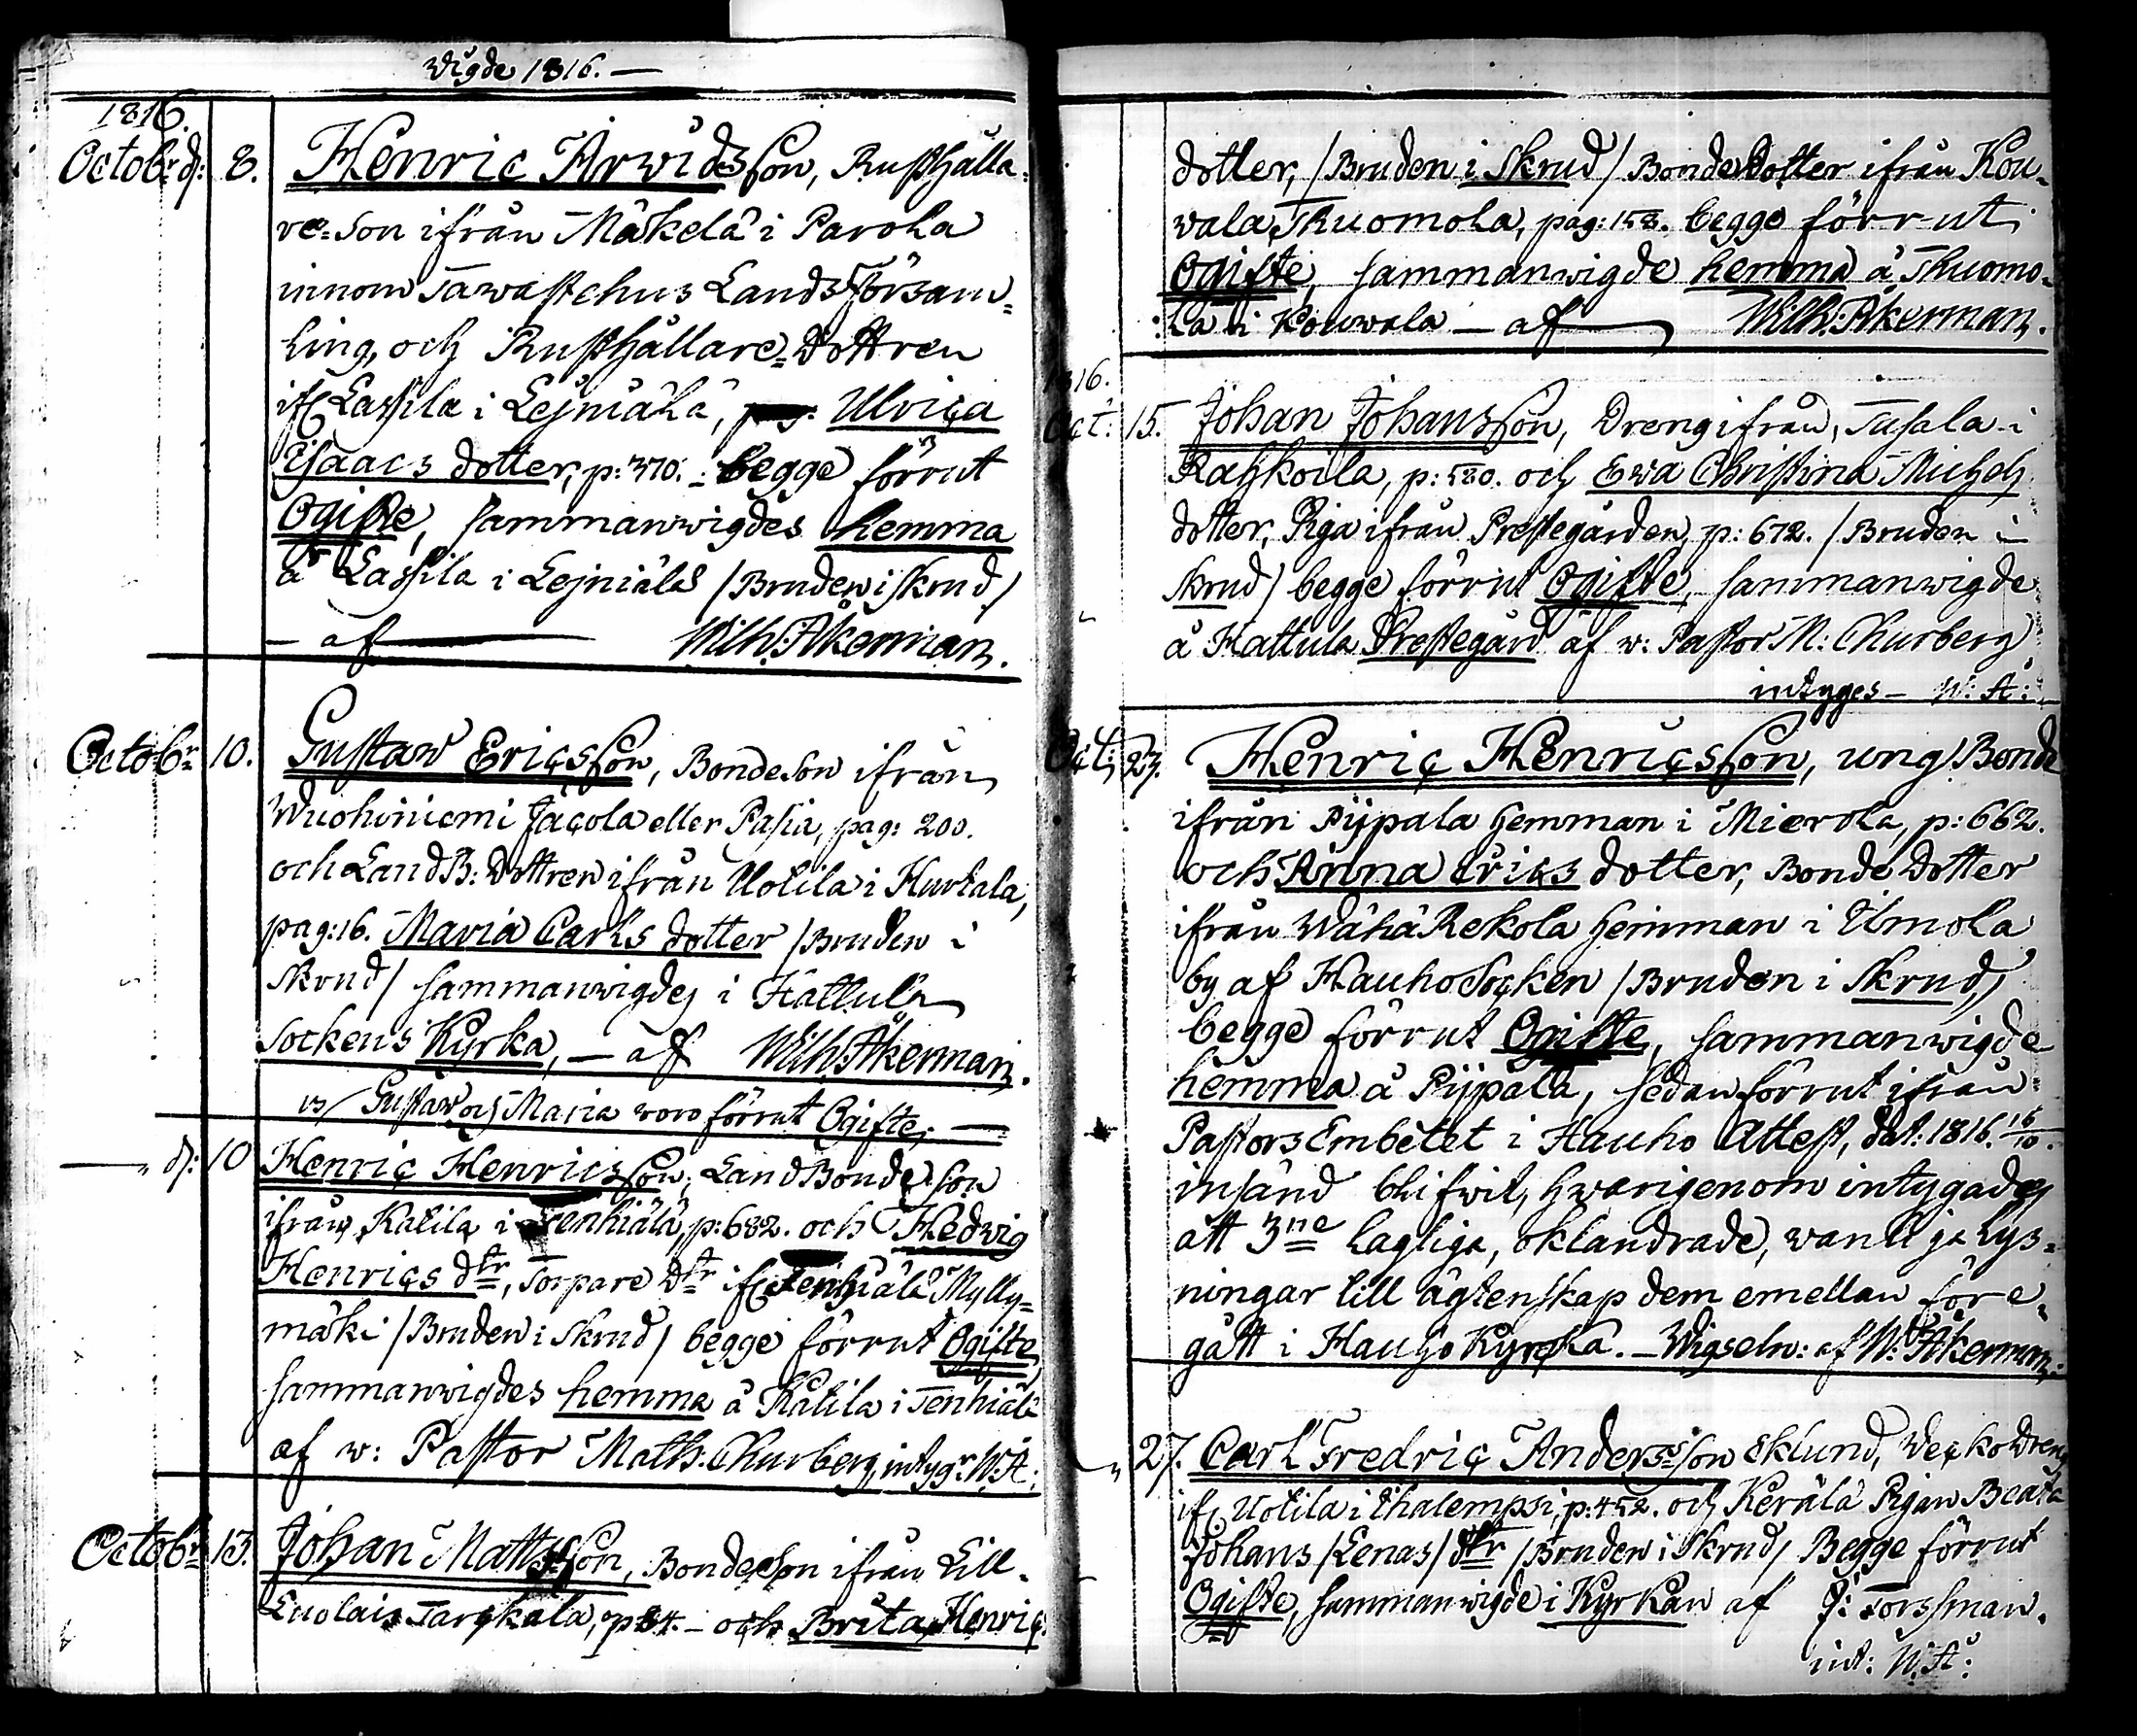 Wigde 1816. —
1816.
Octobr d: 8. Henric Arwidsson, Rusthålla-
re-Son ifrån Mäkelä i Parola
innom Tawastehus Lands Försam-
ling, och Rusthållare-Dottren
ifr Lassila i Lejniälä, Ulrica
Isaacs dotter, p: 370. begge förrut
Ogifte, sammanwigdes hemma
å Lassila i Lejniälä /Bruden i skrud/
— af — Wilh: Åkerman.
Octobr 10. Gustaw Ericsson, Bondeson ifrån
Wuohiniemi Jacola eller Pasia, pag: 200.
och LandB: Dottren ifrån Uotila i Hurtala,
pag: 16. Maria Carls dotter /Bruden i
Skrud/ sammanwigdes i Hattula
Sockens Kyrka, — af Wilh: Åkerman.
Gustaw och Maria woro förrut Ogifte, —
— d: 10 Henric Henricsson, LandBonde son
ifrån Katila i Tenhiälä, p: 682. och Hedwig
Henrics dtr, Torpare dtr ifr Tenhiälä Mylly-
mäki /Bruden i Skrud/ begge förrut Ogifte,
sammanwigdes hemma å Katila i Tenhiälä
af w: Pastor Math: Churberg, intygr W: Å:
Octobr 13. Johan Mattsson, Bondeson ifrån Lill-
Luolais Tarckala, p 84. — och Brita Henrics
dotter, /Bruden i Skrud/ Bondedotter ifrån Kou-
wala Thuomola, pag: 158. begge förr-ut
Ogifte, sammanwigde hemma å Thuomo-
la i Kouwala — af — Wilh: Åkerman.
1816.
Oct: 15. Johan Johansson, Dreng ifrån, Tusala i
Rahkoila, p: 520. och Ewa Christina Michels
dotter, Piga ifrån Prestegården, p: 672. /Bruden i
skrud/ begge förrut Ogifte, sammanwigde
å Hattula Prestegård af w: Pastor M: Churberg
intyges — W: Å:
Oct: 27. Henric Henricsson, ung Bonde
ifrån Pijpala hemman i Mierola, p: 662.
och Anna Eriks dotter, Bonde Dotter
ifrån Wähä Rekola hemman i Umola
by af Hauho Socken /Bruden i Skrud,/
begge förrut Ogifte, sammanwigde
hemma å Pijpala, sedan förrut ifrån
Pastors Embetet i Hauho Attest, dat: 1816. 16/10.
insänd blifwit, hwarigenom intygades
att 3ne lagliga, oklandrade, wanliga lys-
ningar till ägtenskap dem emellan före-
gått i Hauho Kyrcka. — Wigseln: af W: Åkerman.
27. Carl Fredric Andersson Eklund, Wecko Dreng
ifr Uotila i Ihalempsi, p: 452. och Kerälä Pigan Beata
Johans /Lenas/ dtr /Bruden i Skrud/ Begge förrut
Ogifte, sammanwigde i Kyrkan af J: Forssman.
int: W: Å: